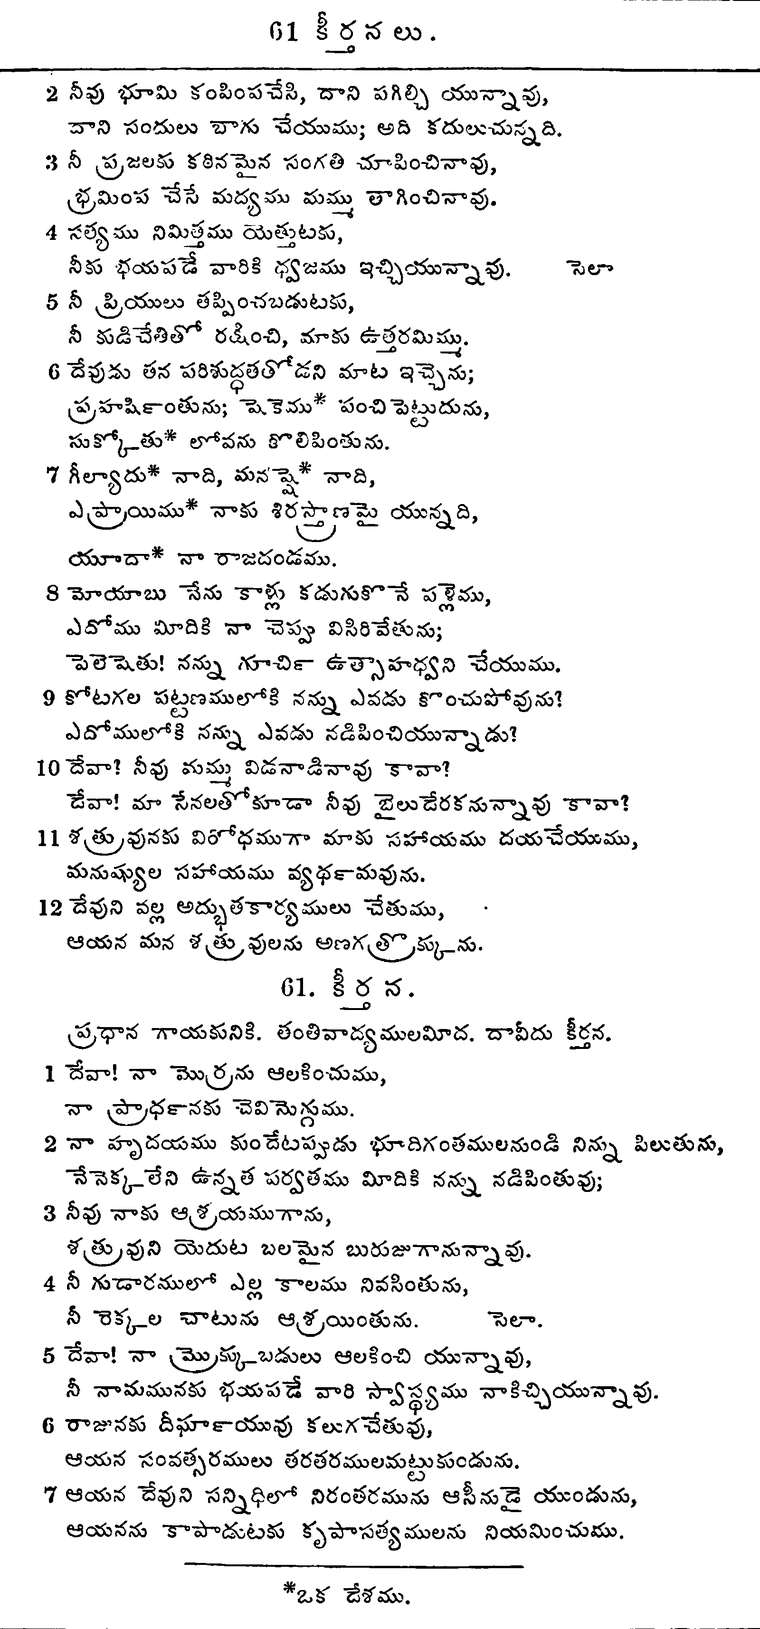 61 కీర్తనలు.
2 నీవు భూమి కంపింపచేసి, దాని పగిల్చి యున్నావు,
దాని సందులు బాగు చేయుము; అది కదులుచున్నది.
3 నీ ప్రజలకు కఠినమైన సంగతి చూపించినావు,
భ్రమింప చేసే మద్యము మమ్ము త్రాగించినావు.
4 సత్యము నిమిత్తము యెత్తుటకు,
నీకు భయపడే వారికి ధ్వజము ఇచ్చియున్నావు. సెలా
5 నీ ప్రియులు తప్పించబడుటకు,
నీ కుడిచేతితో రక్షించి, మాకు ఉత్తరమిమ్ము.
6 దేవుడు తన పరిశుద్ధతతోడని మాట ఇచ్చెను;
ప్రహర్షింతును; షెకెము* పంచిపెట్టుదును,
సుక్కోతు* లోవను కొలిపింతును.
7 గీల్యాదు* నాది, మనష్షె* నాది,
ఎఫ్రాయిము* నాకు శిరస్త్రాణమై యున్నది,
యూదా* నా రాజదండము.
8 మోయాబు నేను కాళ్లు కడుగుకొనే పళ్లెము,
ఎదోము మీదికి నా చెప్పు విసిరివేతును;
పెలెషెతు! నన్ను గూర్చి ఉత్సాహధ్వని చేయుము.
9 కోటగల పట్టణములోకి నన్ను ఎవడు కొంచుపోవును?
ఎదోములోకి నన్ను ఎవడు నడిపించియున్నాడు?
10 దేవా? నీవు మమ్ము విడనాడినావు కావా?
దేవా! మా సేనలతోకూడా నీవు బైలుదేరకనున్నావు కావా?
11 శత్రువునకు విరోధముగా మాకు సహాయము దయచేయుము,
మనుష్యుల సహాయము వ్యర్థమవును.
12 దేవుని వల్ల అద్భుతకార్యములు చేతుము,
ఆయన మన శత్రువులను అణగత్రొక్కును.
61. కీర్తన.
ప్రధాన గాయకునికి. తంతివాద్యములమీద. దావీదు కీర్తన.
1 దేవా! నా మొర్రను ఆలకించుము,
నా ప్రార్థనకు చెవినొగ్గుము.
2 నా హృదయము కుందేటప్పుడు భూదిగంతములనుండి నిన్ను పిలుతును,
నేనెక్కలేని ఉన్నత పర్వతము మీదికి నన్ను నడిపింతువు;
3 నీవు నాకు ఆశ్రయముగాను,
శత్రువుని యెదుట బలమైన బురుజుగానున్నావు.
4 నీ గుడారములో ఎల్ల కాలము నివసింతును,
నీ రెక్కల చాటును ఆశ్రయింతును. సెలా.
5 దేవా! నా మ్రొక్కుబడులు ఆలకించి యున్నావు,
నీ నామమునకు భయపడే వారి స్వాస్థ్యము నాకిచ్చియున్నావు.
6 రాజునకు దీర్ఘాయువు కలుగచేతువు,
ఆయన సంవత్సరములు తరతరములమట్టుకుండును.
7 ఆయన దేవుని సన్నిధిలో నిరంతరమును ఆసీనుడై యుండును,
ఆయనను కాపాడుటకు కృపాసత్యములను నియమించుము.
*ఒక దేశము.